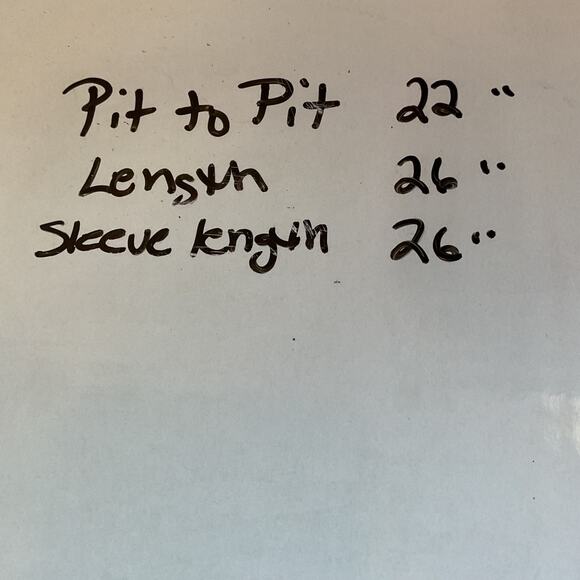 Pit to Pit 22"
Length 26"
Sleeve length 26"